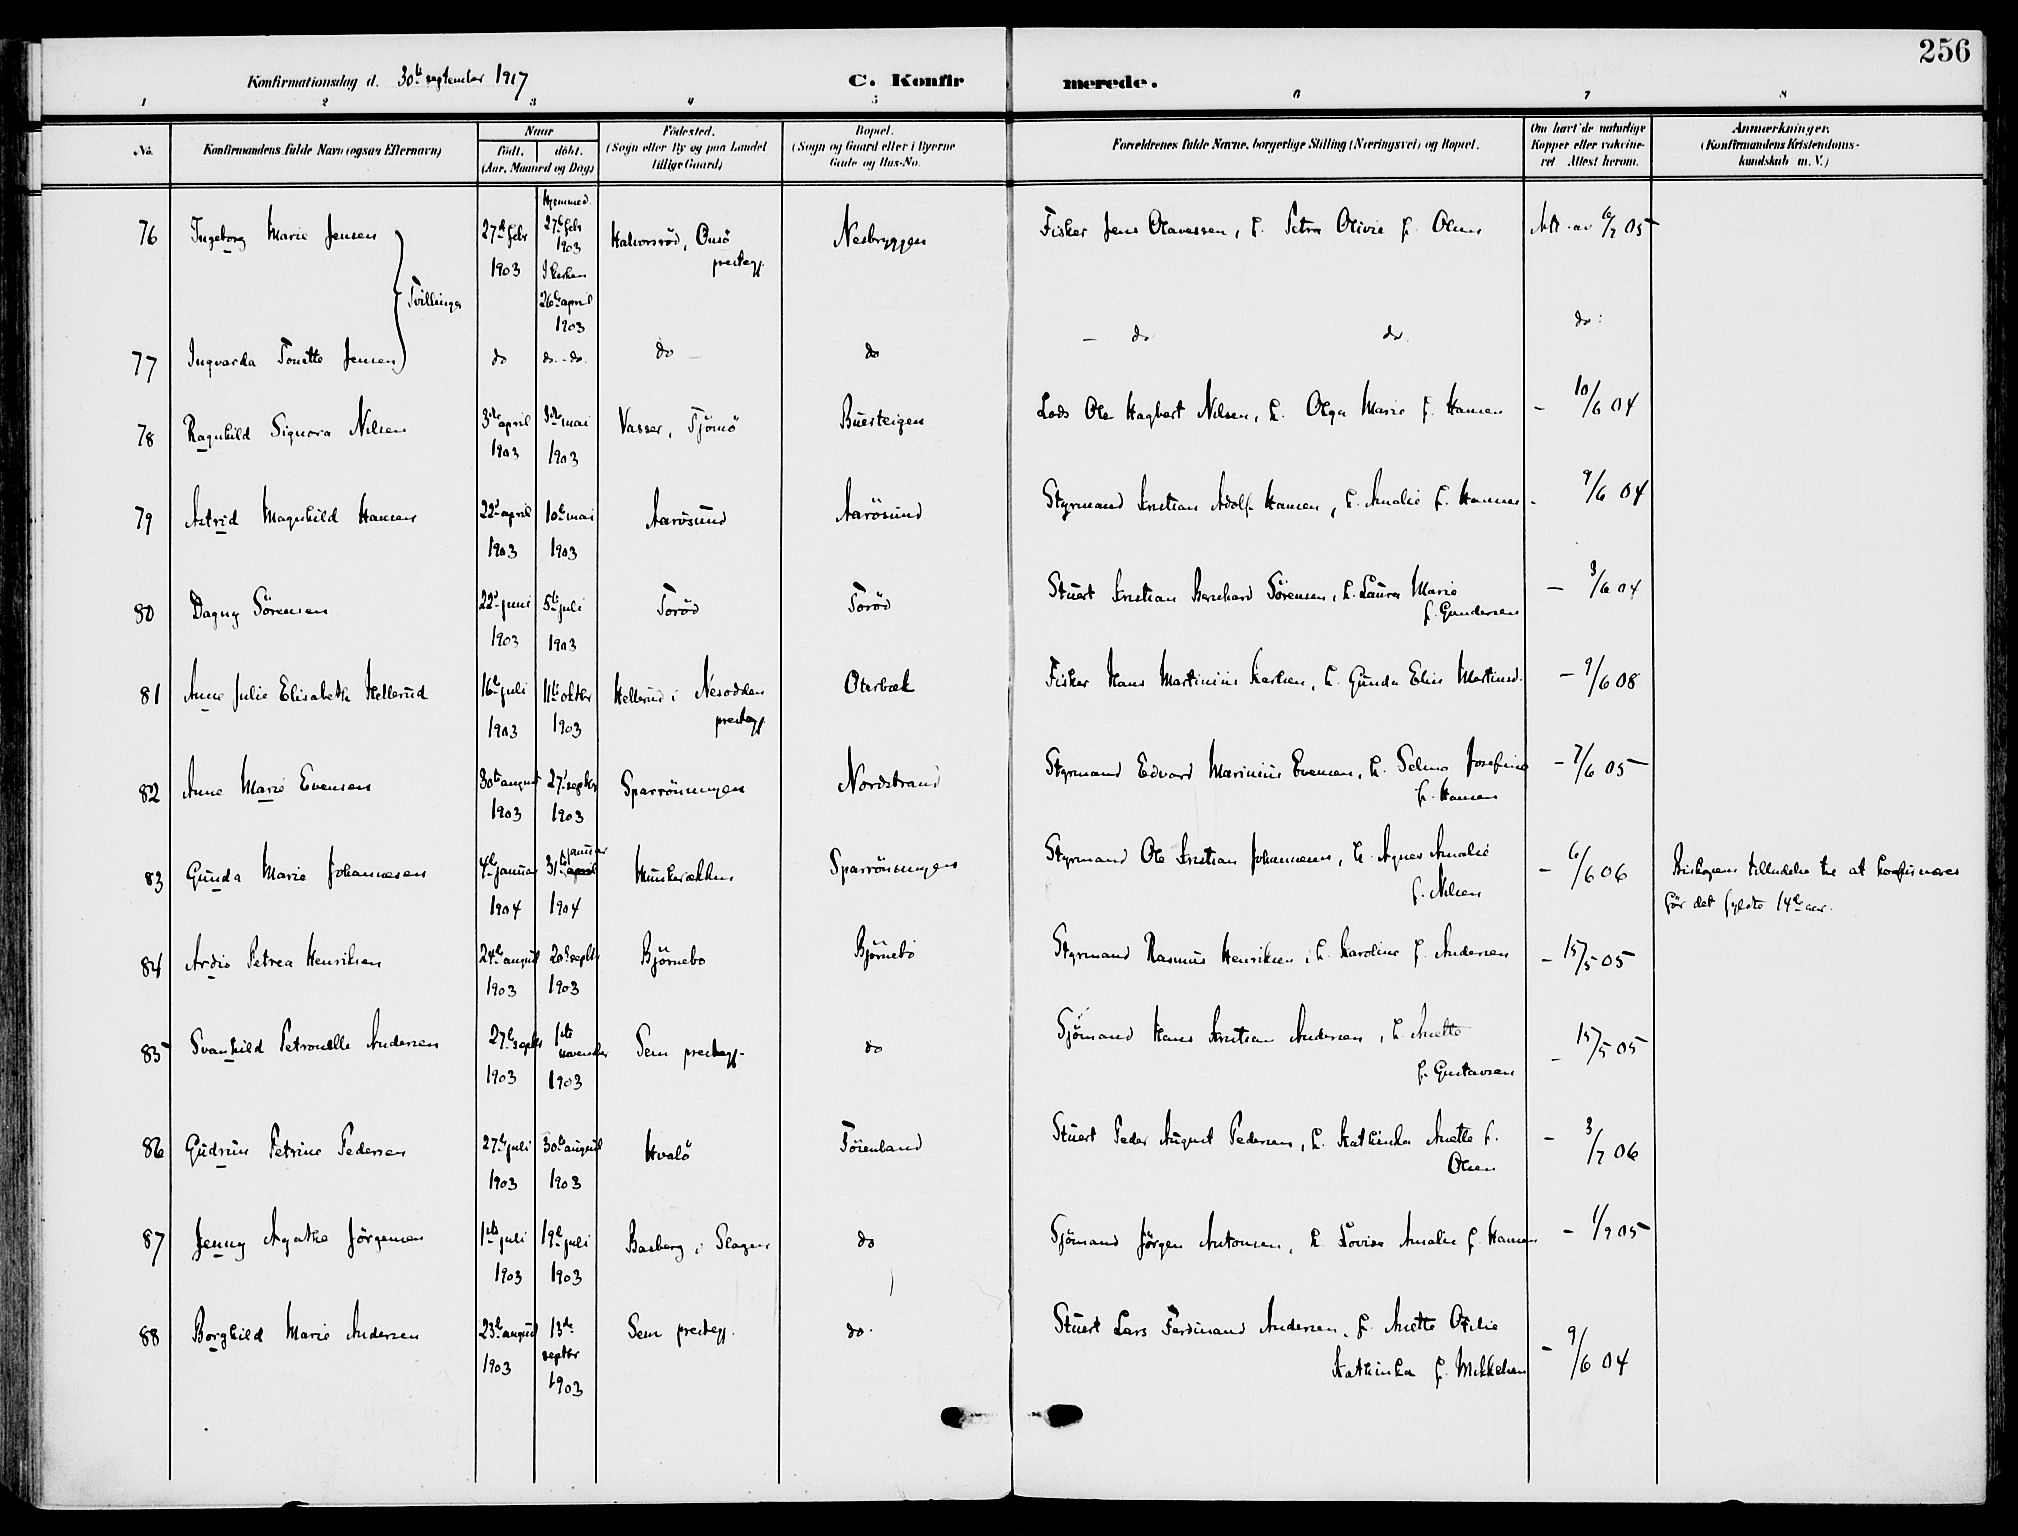 256
Konfirmationsdag d. 30te september 1917
C. Konfirmerede.
1 2 3 4 5 6 7 8
No. Konfirmandens fulde Navn (ogsaa Efternavn) Naar født. døbt. (Aar, Maaned og Dag) Fødested. (Sogn eller By og paa Landet tillige Gaard) Bopæl. (Sogn og Gaard eller i Byerne Gade og Hus-No. Forældrenes fulde Navne, borgerlige Stilling (Næringsvei) og Bopæl. Om havt de naturlige Kopper eller vakcineret Attest herom. Anmærkninger. (Konfirmandens Kristendomskundskab m. V.)
76 Ingeborg Marie Jensen 27de febr 1903 Hjemmed. 27de febr 1903 I kirken 26de april 1903 Halvorsrød, Onsö prestegj. Nesbryggen Fisker Jens Olavessen, h. Petra Olivie f. Olsen Att. av 6/7 05
Tvillinger
77 Ingvarda Tonette Jensen do do. - do. do - do - do do. do:
78 Ragnhild Signora Nilsen 3die april 1903 3die mai 1903 Vasser, Tjömö Buerteigen Lods Ole Hagbart Nilsen, h. Olga Marie f. Hansen - 10/6 04
79 Astrid Magnhild Hansen 22de april 1903 10de mai 1903 Aarösund Aarösund Styrmand Kristian Adolf Hansen, h. Amalie f. Hansen - 9/6 04
80 Dagny Sörensen 22de juni 1903 5te juli 1903 Toröd Toröd Stuert Kristian Bernhard Sörensen, h. Laura Marie f. Gundersen - 3/6 04
81 Anne Julie Elisabeth Hellerud 16de juli 1903 11te oktbr 1903 Hellerud i Nesodden prestegj. Oterbæk Fisker Hans Martinius Karlsen, h. Gunda Elise Martinsd. - 9/6 08
82 Anne Marie Evensen 30te august 1903 27de septbr 1903 Sparrönsungen Nordstrand Styrmand Edvard Marinius Evensen, h. Selma Josefine f. Hansen - 7/6 05
83 Gunda Marie Johannesen 4de januar 1904 31te april januar 1904 Munkerækken Sparrönsungen Styrmand Ole Kristian Johannesen, h. Agnes Amalie f. Nilsen - 6/6 06 Biskopens tilladelse til at konfirmeres för det fyldte 14de aar.
84 Ardis Petrea Henriksen 24de august 1903 20de septbr 1903 Björnebo Björnebo Styrmand Rasmus Henriksen, h. Karoline f. Andersen - 15/5 05
85 Svanhild Petronelle Andersen 27de septbr 1903 1ste november 1903 Sem prestegj. do Sjömand Hans Kristian Andersen, h. Anette f. Gustavsen - 15/5 05
86 Gudrun Petrine Pedersen 27de juli 1903 30te august 1903 Hvalö Töienland Stuert Peder August Pedersen, h. Kathinka Anette f. Olsen - 3/7 06
87 Jenny Agathe Jörgensen 1ste juli 1903 19de juli 1903 Basberg i Slagen do Sjömand Jörgen Antonsen, h. Lovise Amalie f. Hansen - 1/9 05
88 Borghild Marie Andersen 23de august 1903 13de septbr 1903 Sem prestegj. do. Stuert Lars Ferdinand Andersen, h. Anette Otilie Kathinka f. Mikkelsen - 9/6 04